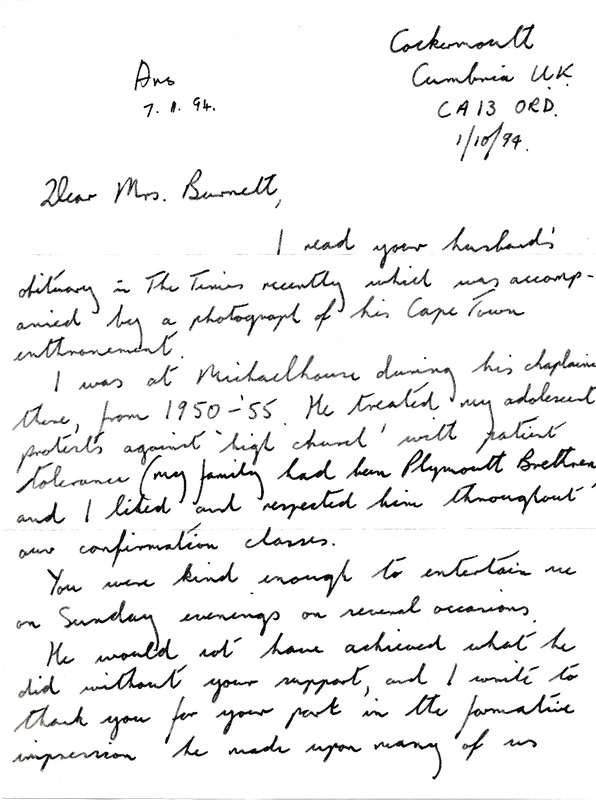 Cockermouth
Cumbria U.K.
CA13 ORD.
1/10/94.
Ans
7. 11. 94.
Dear Mrs. Burnett,
I read your husband's
obituary in The Times recently which was accomp-
anied by a photograph of his Cape Town
enthronement.
I was at Michaelhouse during his chaplainc
there, from 1950-'55. He treated my adolescent
protests against 'high church' with patient
tolerance (my family had been Plymouth Brethren
and I liked and respected him throughout
our confirmation classes.
You were kind enough to entertain me
on Sunday evenings on several occasions.
He would not have achieved what he
did without your support, and I write to
thank you for your part in the formative
impression he made upon many of us